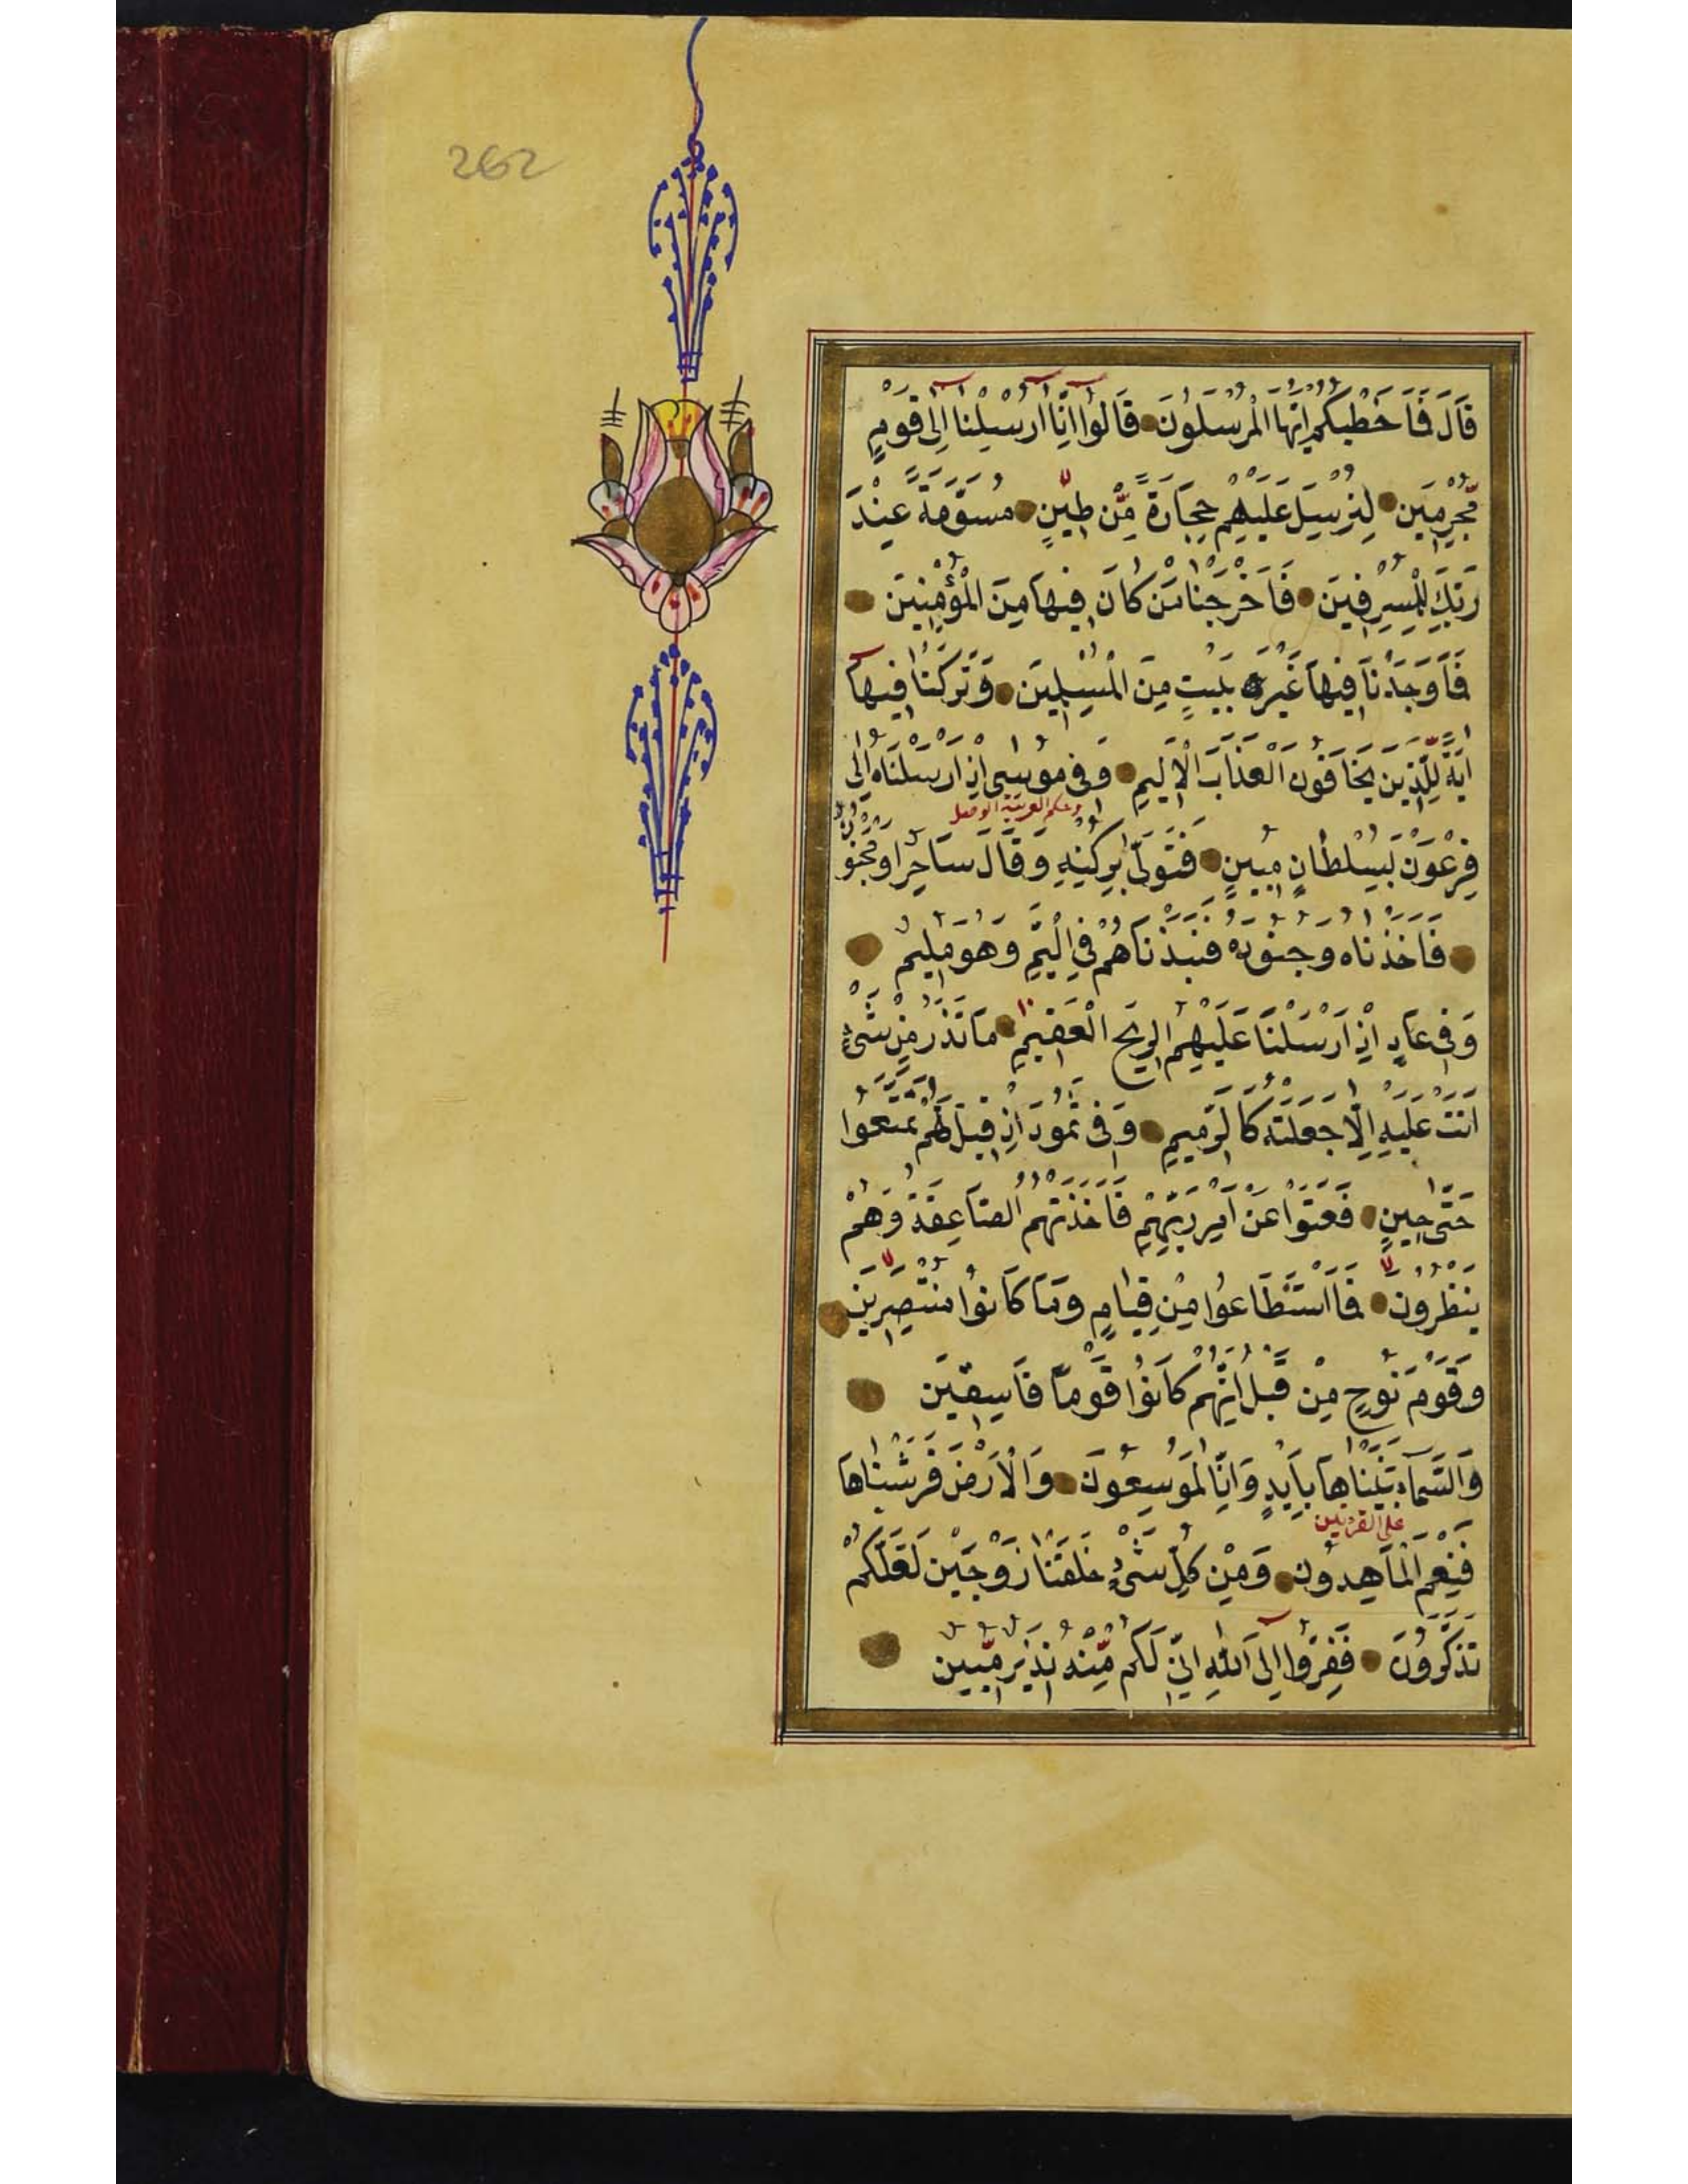 262
قَالَ فَمَا خَطْبُكُمْ اَيُّهَا الْمُرْسَلُونَ قَالُوا اِنَّا اُرْسِلْنَا اِلٰى قَوْمٍ
مُّجْرِمِينَ لِنُرْسِلَ عَلَيْهِمْ حِجَارَةً مِّنْ طِينٍ مُسَوَّمَةً عِنْدَ
رَبِّكَ لِلْمُسْرِفِينَ فَاَخْرَجْنَا مَنْ كَانَ فِيهَا مِنَ الْمُؤْمِنِينَ
فَمَا وَجَدْنَا فِيهَا غَيْرَ بَيْتٍ مِنَ الْمُسْلِمِينَ وَتَرَكْنَا فِيهَا
اٰيَةً لِلَّذِينَ يَخَافُونَ الْعَذَابَ الْاَلِيمَ وَفِى مُوسٰى اِذْ اَرْسَلْنَاهُ اِلٰى
فِرْعَوْنَ بِسُلْطَانٍ مُبِينٍ فَتَوَلّٰى بِرُكْنِهِ وَقَالَ سَاحِرٌ اَوْ مَجْنُونٌ
فَاَخَذْنَاهُ وَجُنُودَهُ فَنَبَذْنَاهُمْ فِى الْيَمِّ وَهُوَ مُلِيمٌ
وَفِى عَادٍ اِذْ اَرْسَلْنَا عَلَيْهِمُ الرِّيحَ الْعَقِيمَ مَا تَذَرُ مِنْ شَىْءٍ
اَتَتْ عَلَيْهِ اِلَّا جَعَلَتْهُ كَالرَّمِيمِ وَفِى ثَمُودَ اِذْ قِيلَ لَهُمْ تَمَتَّعُوا
حَتّٰى حِينٍ فَعَتَوْا عَنْ اَمْرِ رَبِّهِمْ فَاَخَذَتْهُمُ الصَّاعِقَةُ وَهُمْ
يَنْظُرُونَ فَمَا اسْتَطَاعُوا مِنْ قِيَامٍ وَمَا كَانُوا مُنْتَصِرِينَ
وَقَوْمَ نُوحٍ مِنْ قَبْلُ اِنَّهُمْ كَانُوا قَوْمًا فَاسِقِينَ
وَالسَّمَاءَ بَنَيْنَاهَا بِاَيْدٍ وَاِنَّا لَمُوسِعُونَ وَالْاَرْضَ فَرَشْنَاهَا
على القربين
فَنِعْمَ الْمَاهِدُونَ وَمِنْ كُلِّ شَىْءٍ خَلَقْنَا زَوْجَيْنِ لَعَلَّكُمْ
تَذَكَّرُونَ فَفِرُّوا اِلَى اللّٰهِ اِنِّى لَكُمْ مِّنْهُ نَذِيرٌ مُّبِينٌ